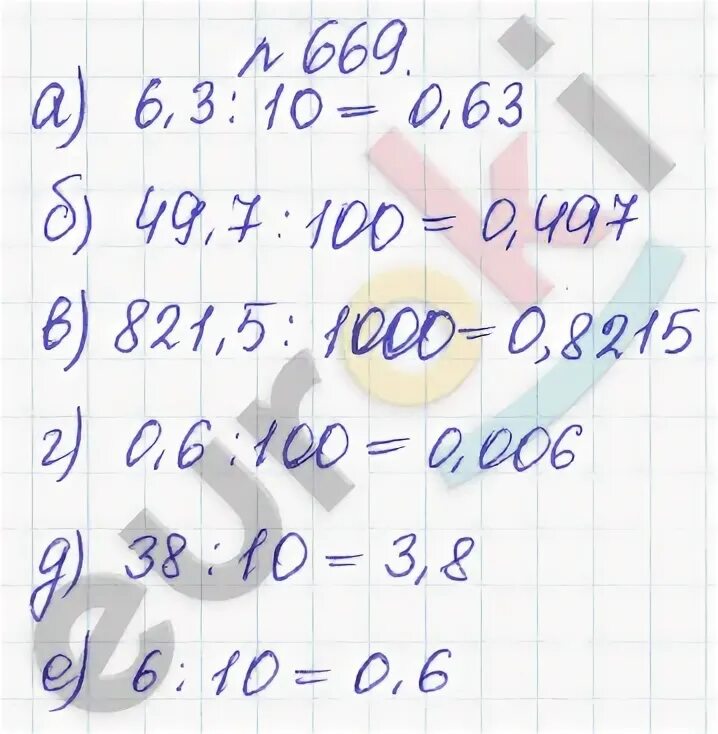 № 669.
а) 6,3 : 10 = 0,63
б) 49,7 : 100 = 0,497
в) 821,5 : 1000 = 0,8215
г) 0,6 : 100 = 0,006
д) 38 : 10 = 3,8
е) 6 : 10 = 0,6
euroki